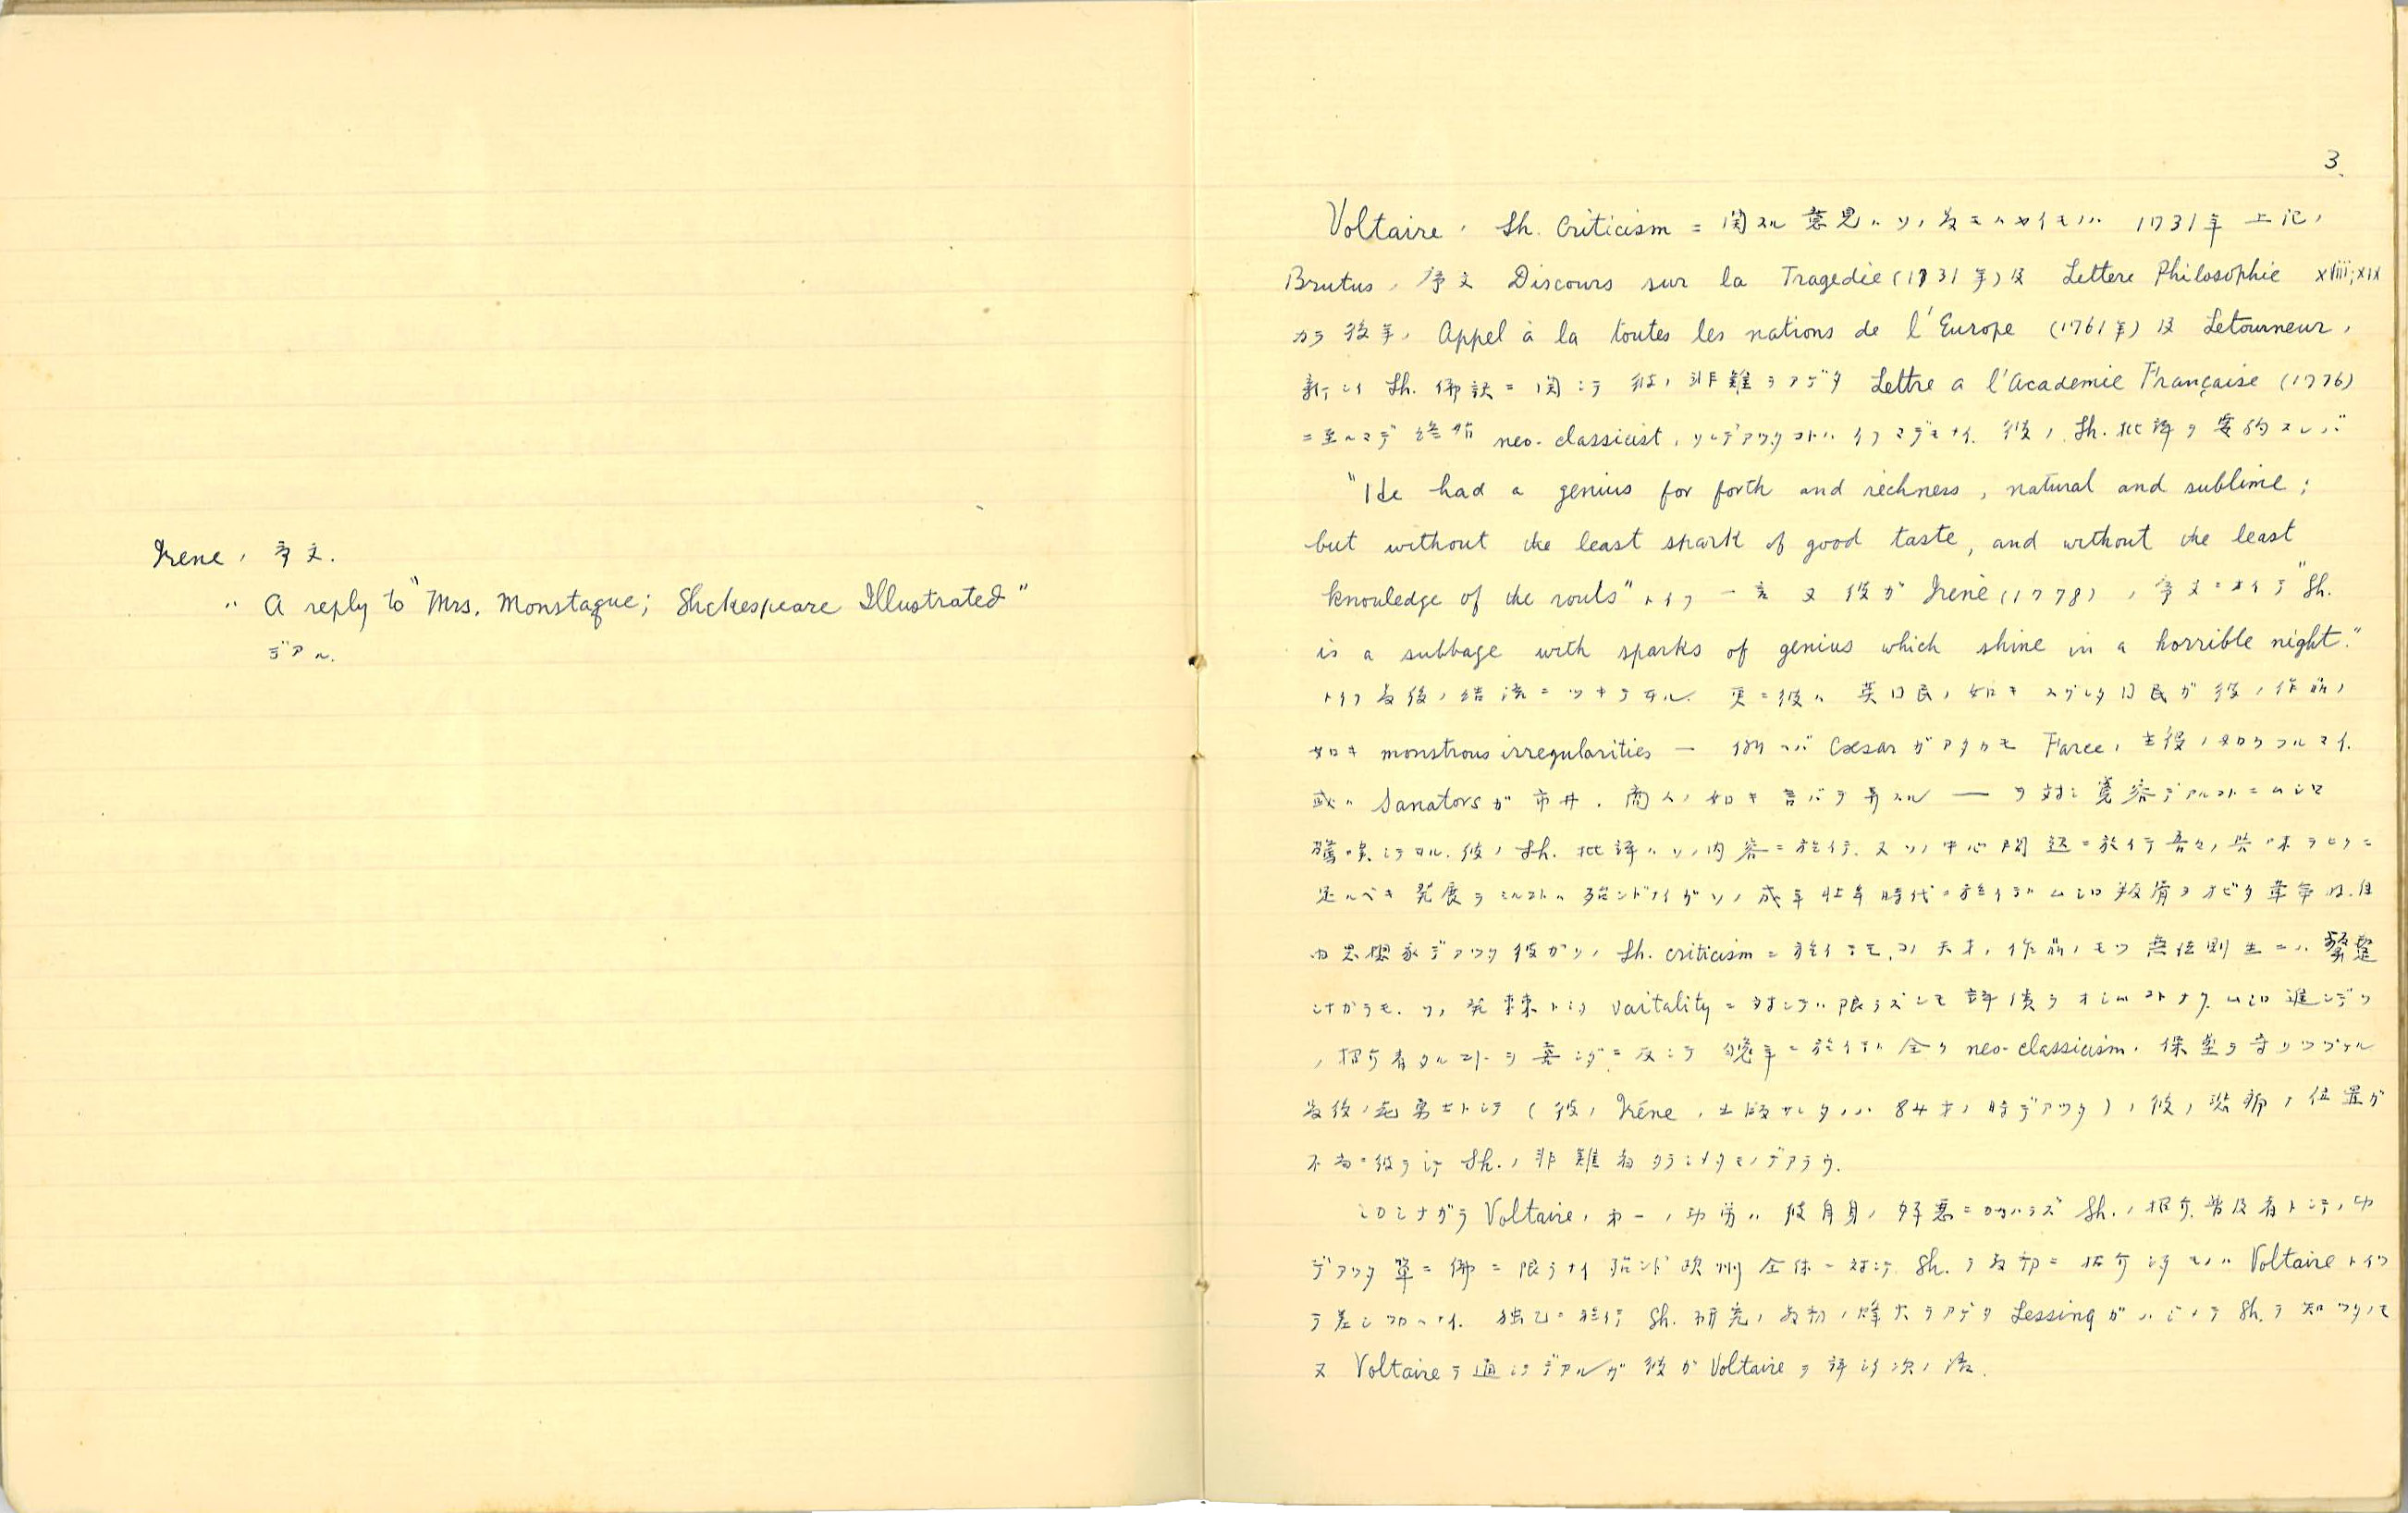 Irene ノ 序文.
〃 A reply to "Mrs. Monstague; Shekespeare Illustrated"
デアル.
3.
Voltaire ノ Sh. Criticism ニ 関スル 意見ハ ソノ 1731年 上記ノ
Brutus ノ 序文 Discours sur la Tragedie (1731年) 及 Lettere Philosophie xviii; xix
カラ 後年ノ Appel à la toutes les nations de l'Europe (1761年) 及 Letourneur ノ
新シイ Sh. 佛訳ニ 関シテ 彼ノ 非難ヲアゲタ Lettre a l'Academie Française (1776)
ニ至ルマデ 終始 neo-classicist ノ ソレデアツタコトハ イフマデモナイ. 彼ノ Sh. 批評ヲ 要約スレバ
"He had a genius for forth and richness, natural and sublime;
but without the least spark of good taste, and without the least
knowledge of the rouls" トイフ 一言 又 彼ガ Irène (1778) ノ 序文ニオイテ "Sh.
is a subbage with sparks of genius which shine in a horrible night."
トイフ最後ノ結論ニツキテヰル. 更ニ彼ハ 英国民ノ如キ スグレタ国民ガ 彼ノ作品ノ
如キ monstrous irregularities — 例ヘバ Cæsar ガアタカモ Farce ノ 主役ノ如クフルマイ.
或ハ Sanators ガ 市井ノ 商人ノ如キ言バヲ弄スル — ヲ対シ寛容デアルコトニムシロ
驚嘆シテヰル. 彼ノ Sh. 批評ハソノ内容ニ於イテ. 又ソノ中心問題ニ於イテ吾々ノ興味ヲヒクニ
足ルベキ発展ヲミルコトハ殆ンドナイガソノ成年壮年時代ニ於イテハムシロ叛骨ヲオビタ革命的.自
由思想家デアツタ彼ガソノ Sh. criticism ニ於イテモ.コノ天才ノ作品ノモツ無法則性ニハ顰蹙
シナガラモ. ソノ発剌トシタ vaitality ニ対シテハ限ラズシモ評價ヲオシムコトナク.ムシロ進ンデソ
ノ紹介者タルコトヲ 反シテ 晩年ニ於イテハ 全ク neo-classicism ノ 保塁ヲ守リツヅケル
最後ノ老勇士トシテ (彼ノ Irène ノ 出版サレタノハ 84才ノ時デアツタ) ノ彼ノ悲痛ノ位置ガ
彼ヲシテ Sh. ノ非難者タラシメタモノデアラウ.
シカシナガラ Voltaire ノ 第一ノ功労ハ 彼自身ノ好悪ニカカハラズ Sh. ノ紹介.普及者トシテノ功
デアツタ 單ニ佛ニ限ラナイ殆ンド欧州全体ニ対シテ. Sh. ヲ最初ニ紹介シタモノハ Voltaire トイツ
テ差シツカヘナイ. 独乙ニ於イテ Sh. 研究ノ最初ノ烽火ヲアゲタ Lessing ガハジメテ Sh. ヲ知ツタノモ
又 Voltaire ヲ通シテデアルガ 彼ガ Voltaire ヲ評シタ次ノ語.